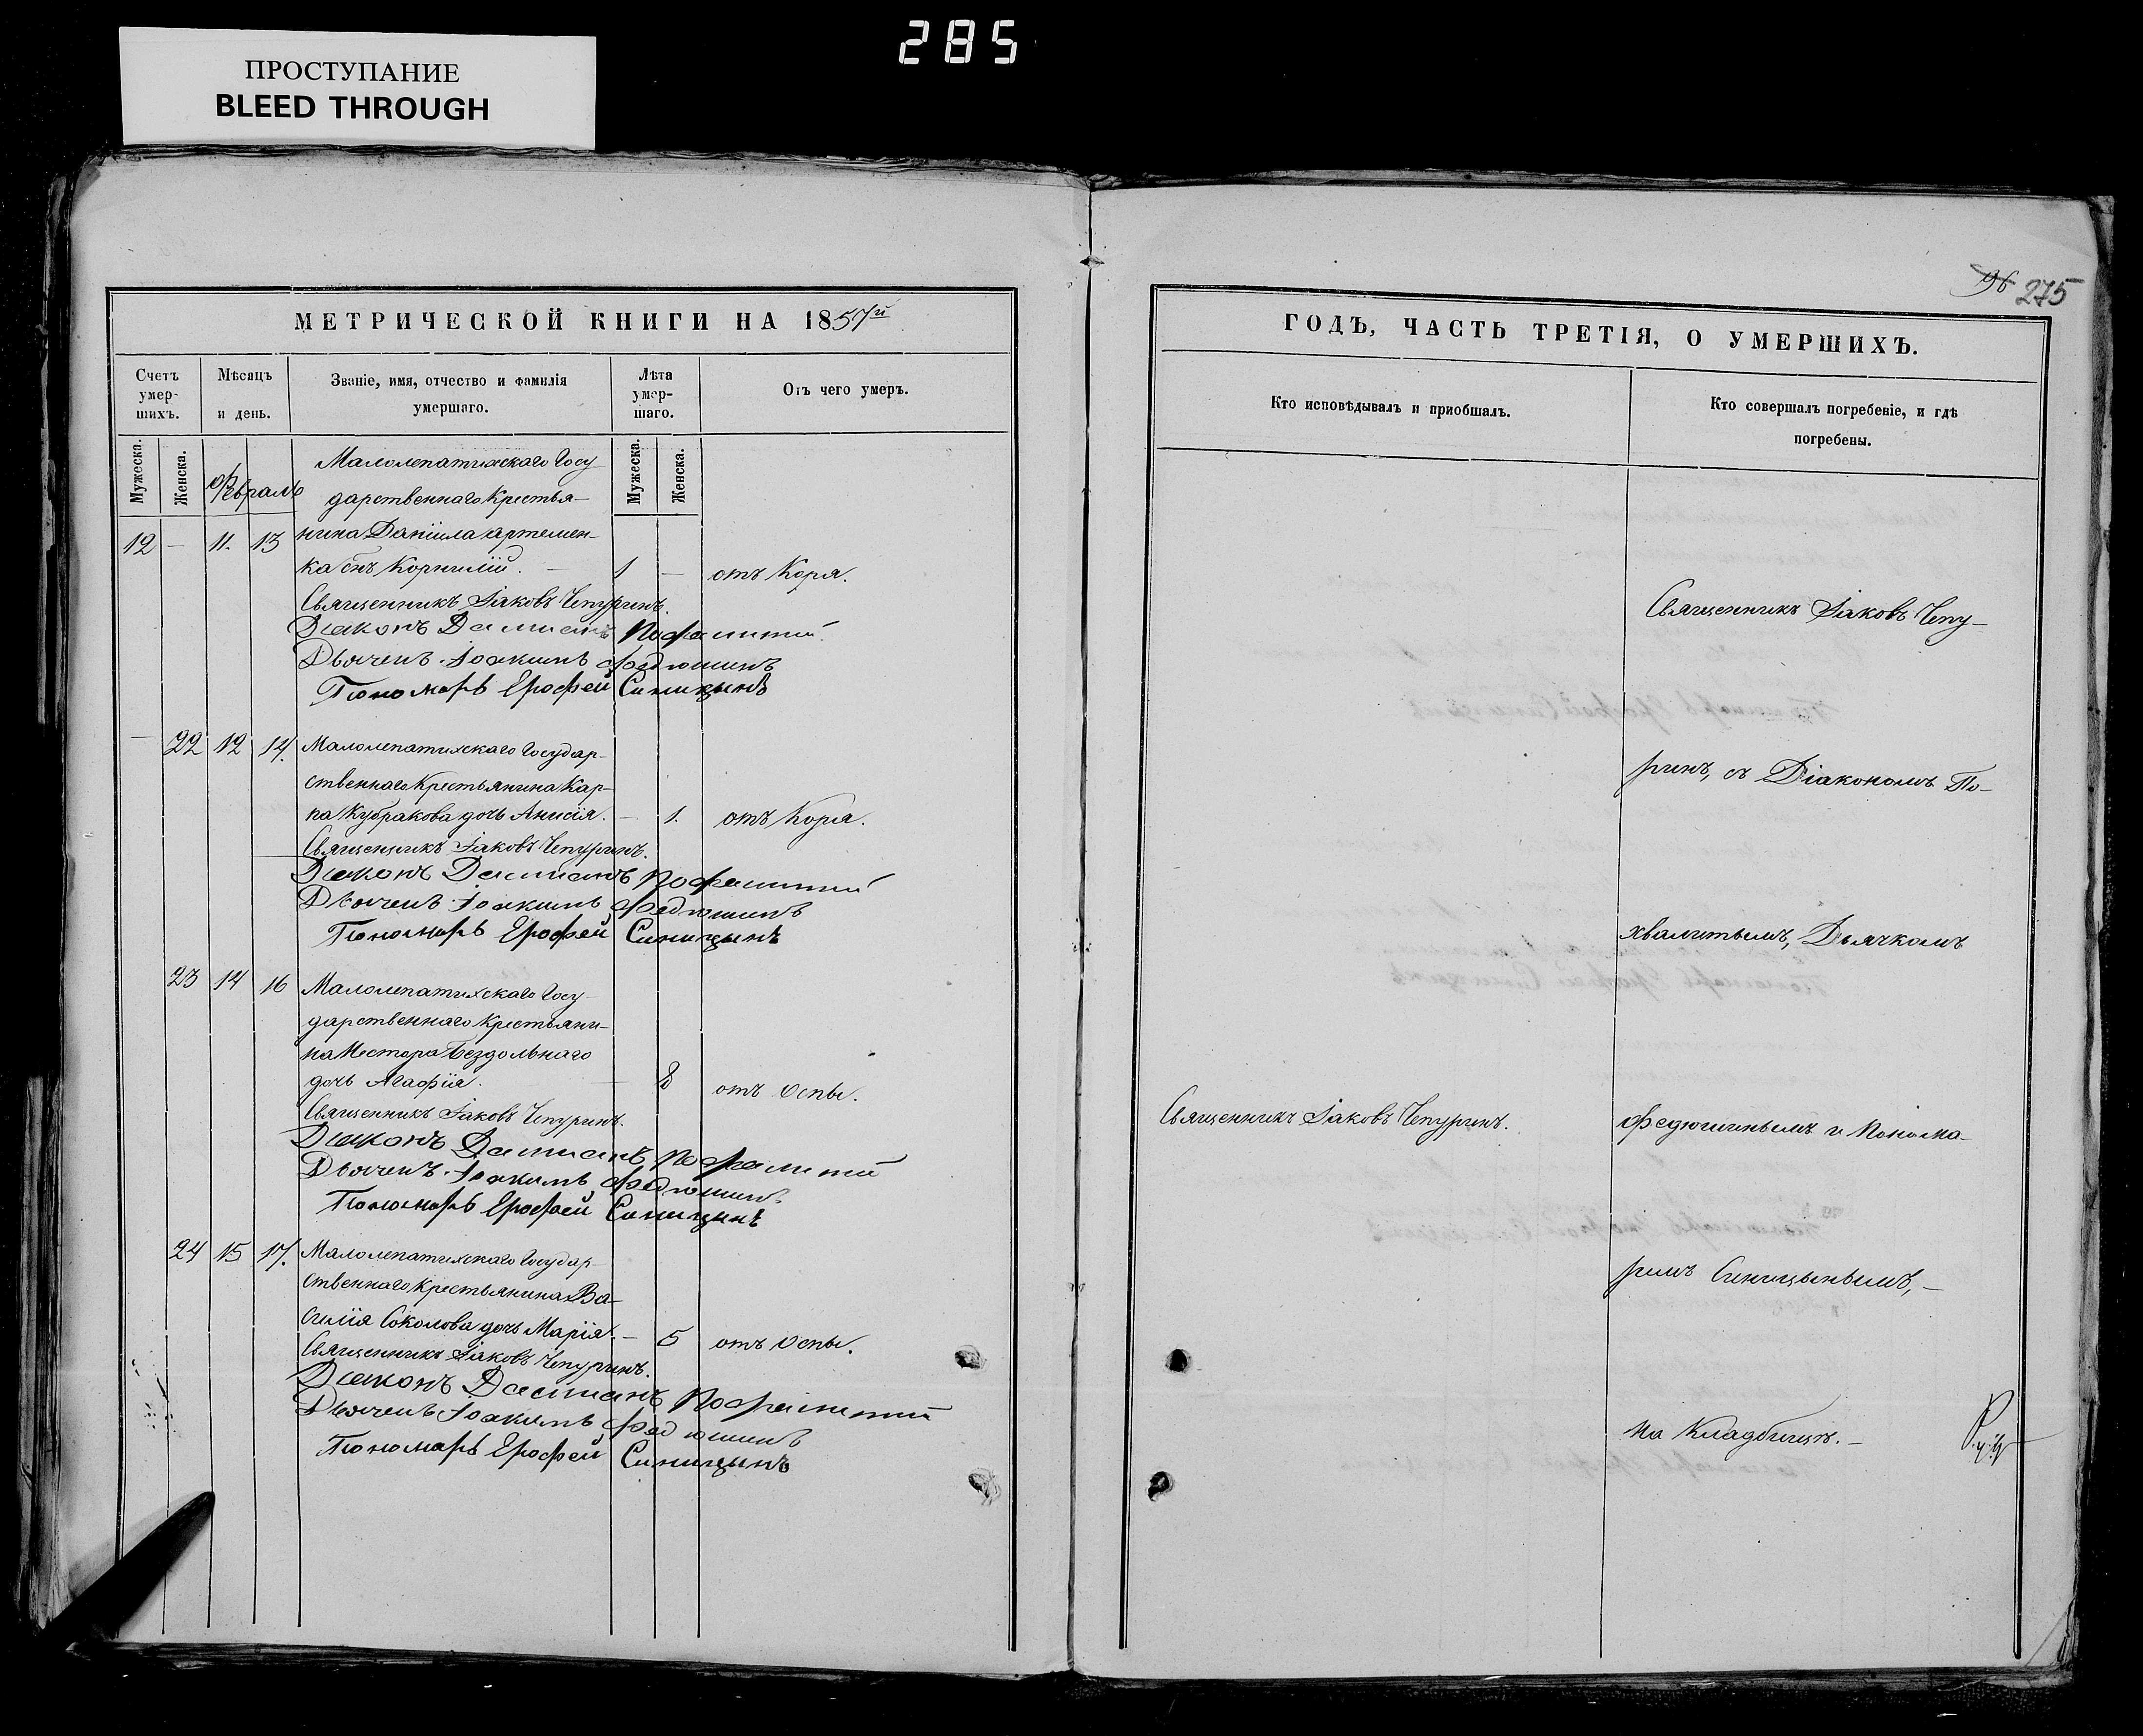 285
ПРОСТУПАНИЕ
BLEED THROUGH
МЕТРИЧЕСКОЙ КНИГИ НА 1857й
Счетъ умер-шихъ.
Мѣсяцъ и день.
Званіе, имя, отчество и фамилія умершаго.
Лѣта умер-шаго.
Отъ чего умеръ.
Мужеска.
Женска.
Февраль
Мужеска.
Женска.
Малолепатихскаго Госу-
дарственнаго Крестья-
12 — 11. 13 нина Даніила Артемен-
ка сынъ Корнилій. — 1 — отъ Коря.
Священникъ Іаковъ Чепуринъ.
Діаконъ Даміанъ Похвалитий
Дьячекъ Іоакимъ Федюшинъ
Пономарь Ерофей Синицынъ
— 22 12 14. Малолепатихскаго Государ-
ственнаго Крестьянина Кар-
па Кубракова дочь Анисія. — 1. отъ Коря.
Священникъ Іаковъ Чепуринъ.
Діаконъ Даміанъ Похвалитий
Дьячекъ Іоакимъ Федюшинъ
Пономарь Ерофей Синицынъ
23 14 16 Малолепатихскаго Госу-
дарственнаго Крестьяни-
на Нестора Бездольнаго
дочь Агафія. — 8 отъ Оспы.
Священникъ Іаковъ Чепуринъ.
Діаконъ Даміанъ Похвалитий
Дьячекъ Іоакимъ Федюшинъ
Пономарь Ерофей Синицынъ
24 15 17. Малолепатихскаго Государ-
ственнаго Крестьянина Ва-
силія Соколова дочь Марія. — 5 отъ Оспы.
Священникъ Іаковъ Чепуринъ.
Діаконъ Даміанъ Похвалитий
Дьячекъ Іоакимъ Федюшинъ
Пономарь Ерофей Синицынъ
275
ГОДЪ, ЧАСТЬ ТРЕТІЯ, О УМЕРШИХЪ.
Кто исповѣдывалъ и пріобщалъ.
Кто совершалъ погребеніе, и гдѣ
погребены.
Священникъ Іаковъ Чепу-
ринъ, съ Діакономъ По-
хвалитымъ, Дьячкомъ
Священникъ Іаковъ Чепуринъ.
Федюшинымъ и Понома-
ремъ Синицынымъ,—
на Кладбищѣ.—